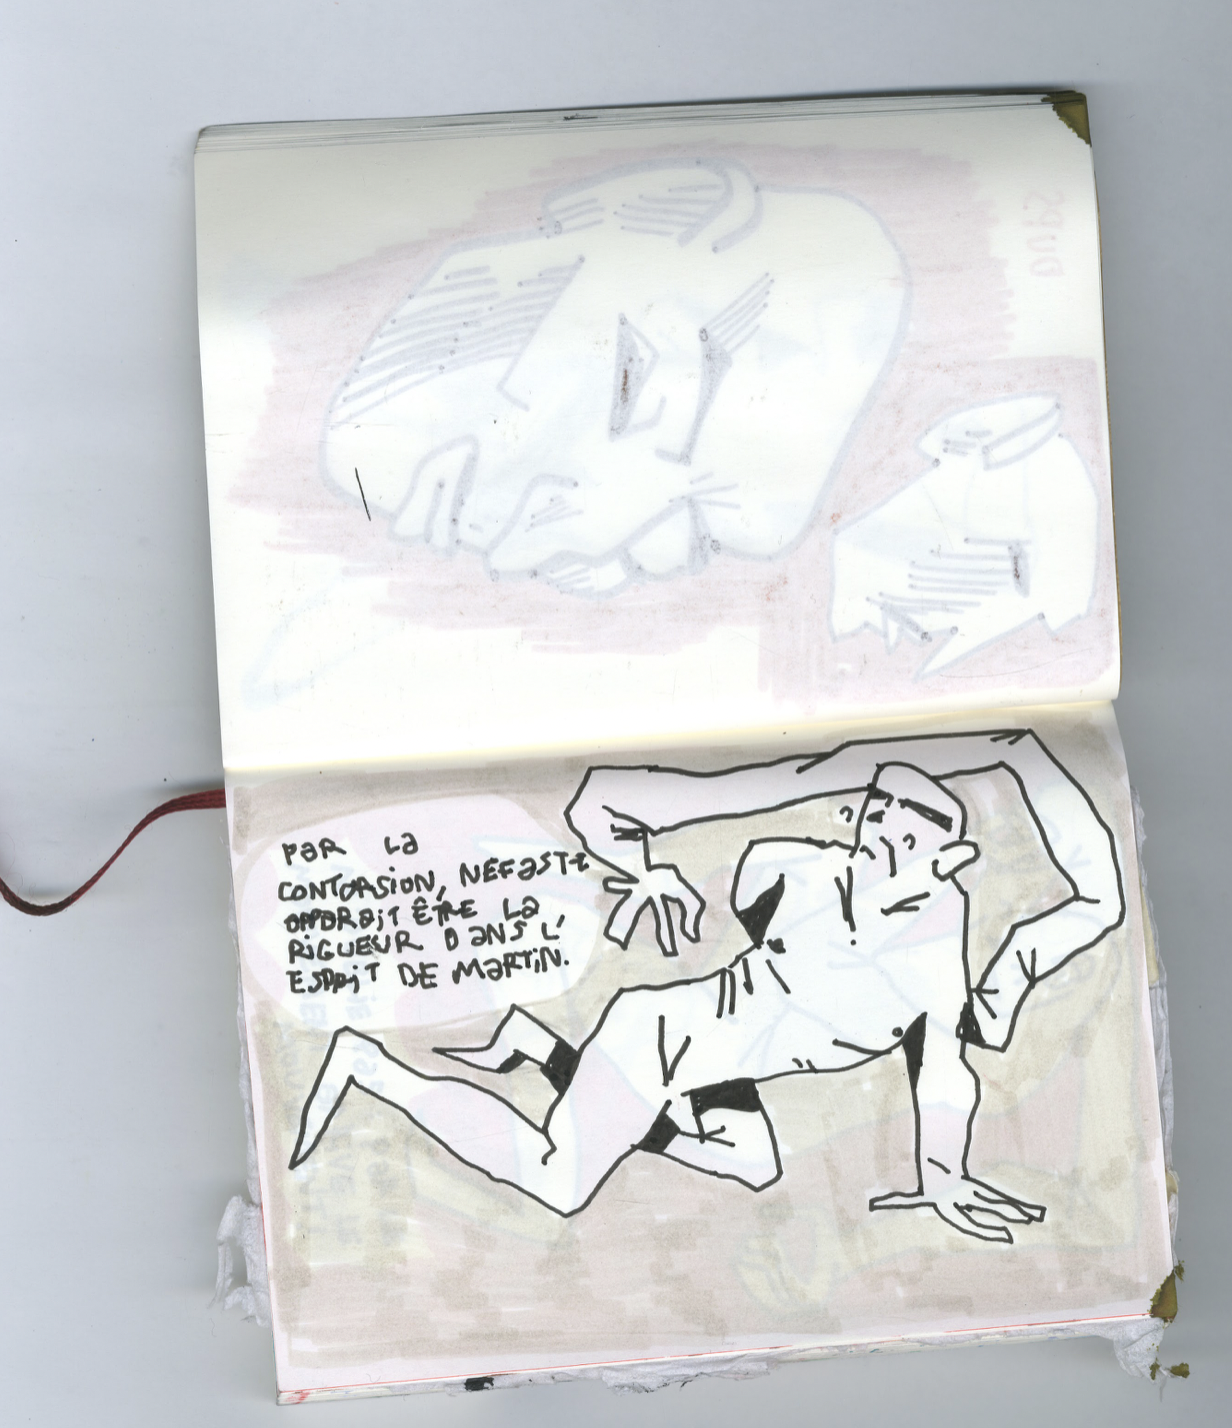 PAR LA
CONTORSION, NEFASTE
APPARAIT ÊTRE LA
RIGUEUR DANS L'
ESPRIT DE MARTIN.